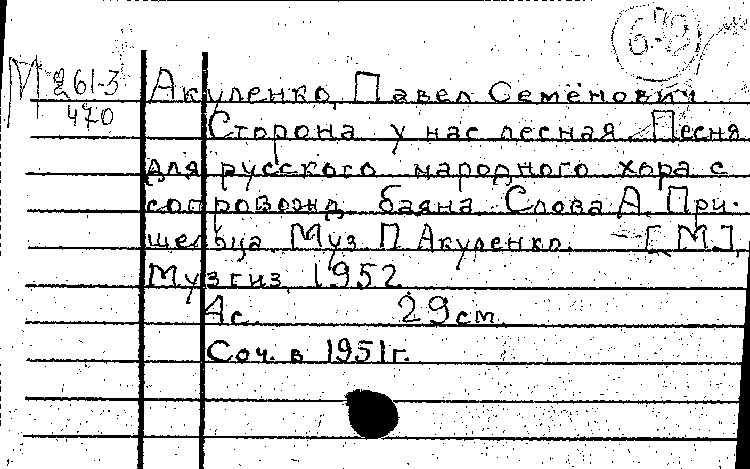 М 261-3
470
Акуленко, Павел Семёнович
Сторона у нас лесная. Песня
для русского народного хора с
сопровожд. баяна. Слова А. При-
шельца. Муз. П. Акуленко. — [М.],
Музгиз, 1952.
4с. 29см.
Соч. в 1951г.